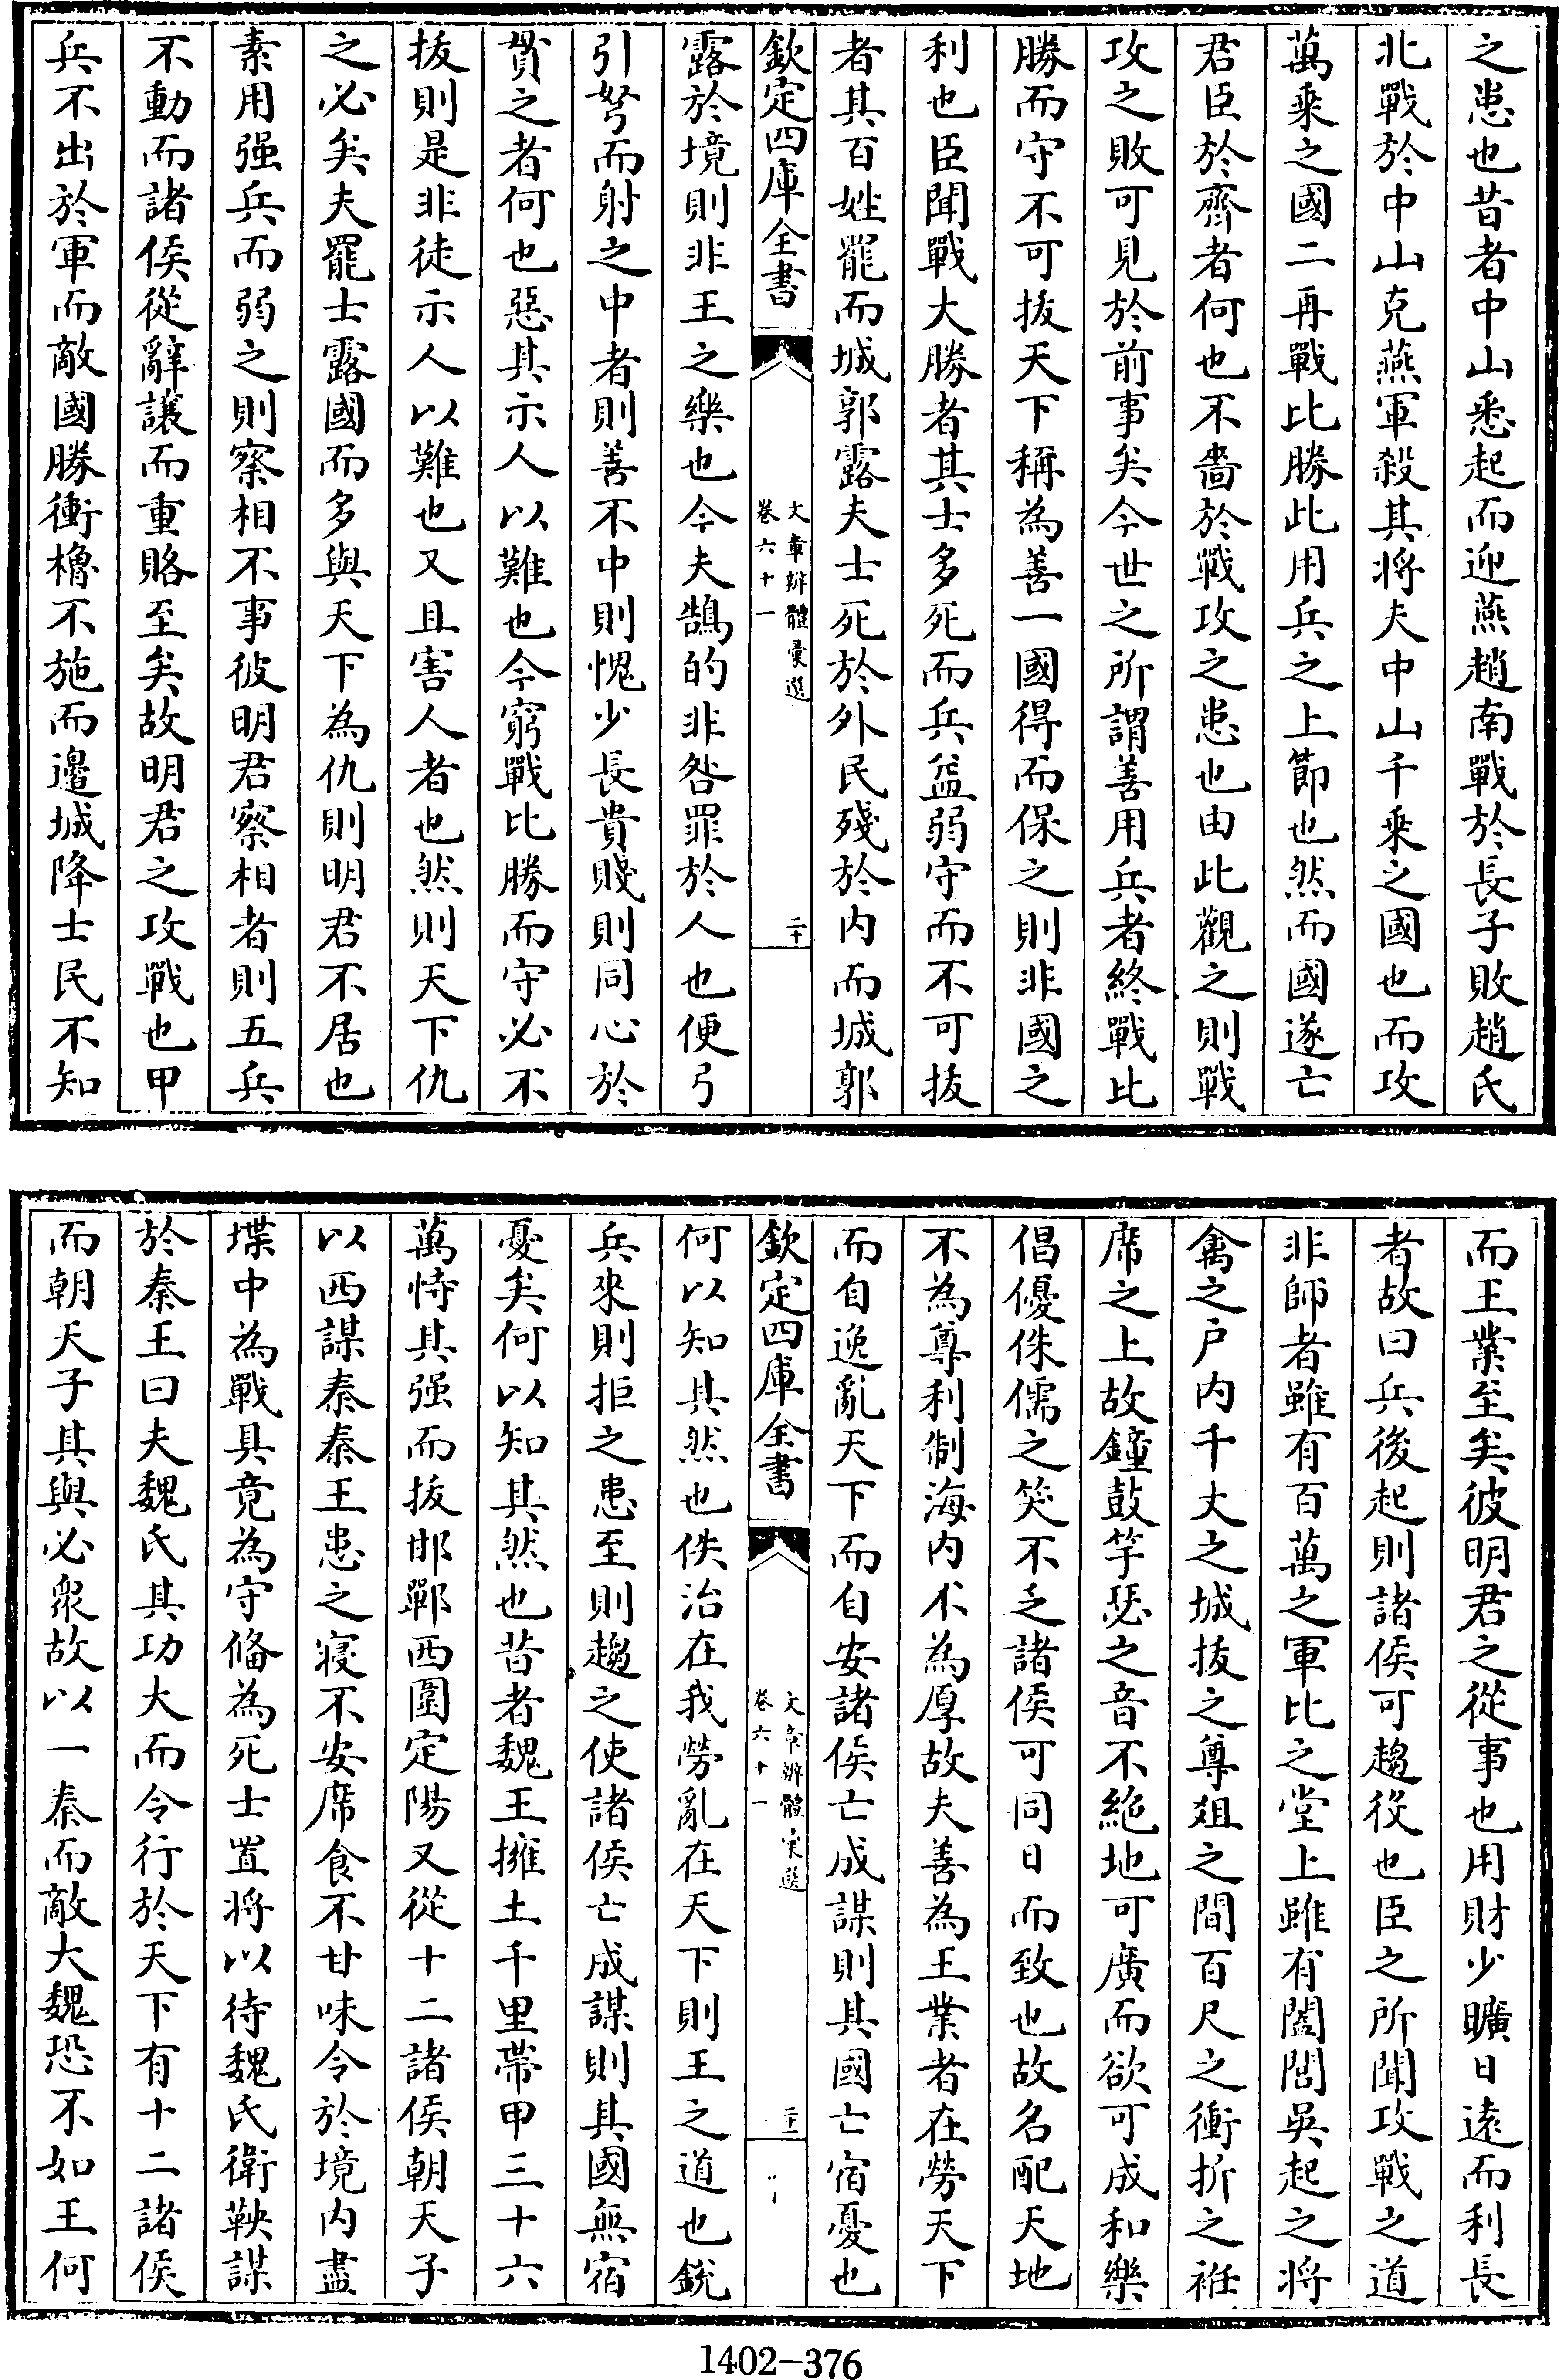 之患也昔者中山悉起而迎燕趙南戰於長子敗趙氏
北戰於中山克燕軍殺其將夫中山千乗之國也而攻
萬乗之國二再戰比勝此用兵之上節也然而國遂亡
君臣於齊者何也不嗇於戰攻之患也由此觀之則戰
攻之敗可見於前事矣今世之所謂善用兵者終戰比
勝而守不可拔天下稱為善一國得而保之則非國之
利也臣聞戰大勝者其士多死而兵益弱守而不可拔
者其百姓罷而城郭露夫士死於外民殘於内而城郭
欽定四庫全書
文章辨體彙選
卷六十一
二十
露於境則非王之樂也今夫鵠的非咎罪於人也便弓
引弩而射之中者則善不中則愧少長貴賤則同心於
貫之者何也惡其示人以難也今窮戰比勝而守必不
拔則是非徒示人以難也又且害人者也然則天下仇
之必矣夫罷士露國而多與天下為仇則明君不居也
素用强兵而弱之則察相不事彼明君察相者則五兵
不動而諸侯從辭讓而重賂至矣故明君之攻戰也甲
兵不出於軍而敵國勝衝櫓不施而邊城降士民不知
而王業至矣彼明君之從事也用財少曠日遠而利長
者故曰兵後起則諸侯可趨役也臣之所聞攻戰之道
非師者雖有百萬之軍比之堂上雖有闔閭吳起之將
禽之户内千丈之城拔之尊爼之間百尺之衝折之袵
席之上故鐘鼓竽瑟之音不絶地可廣而欲可成和樂
倡優侏儒之笑不乏諸侯可同日而致也故名配天地
不為尊利制海内不為厚故夫善為王業者在勞天下
而自逸亂天下而自安諸侯亡成謀則其國亡宿憂也
欽定四庫全書
文章辨體彙選
卷六十一
二十一
何以知其然也佚治在我勞亂在天下則王之道也鋭
兵來則拒之患至則趨之使諸侯亡成謀則其國無宿
憂矣何以知其然也昔者魏王擁土千里帶甲三十六
萬恃其强而拔邯鄲西圍定陽又從十二諸侯朝天子
以西謀秦秦王患之寢不安席食不甘味令於境内盡
堞中為戰具竟為守偹為死士置將以待魏氏衛鞅謀
於秦王曰夫魏氏其功大而令行於天下有十二諸侯
而朝天子其與必衆故以一秦而敵大魏恐不如王何
1402-376